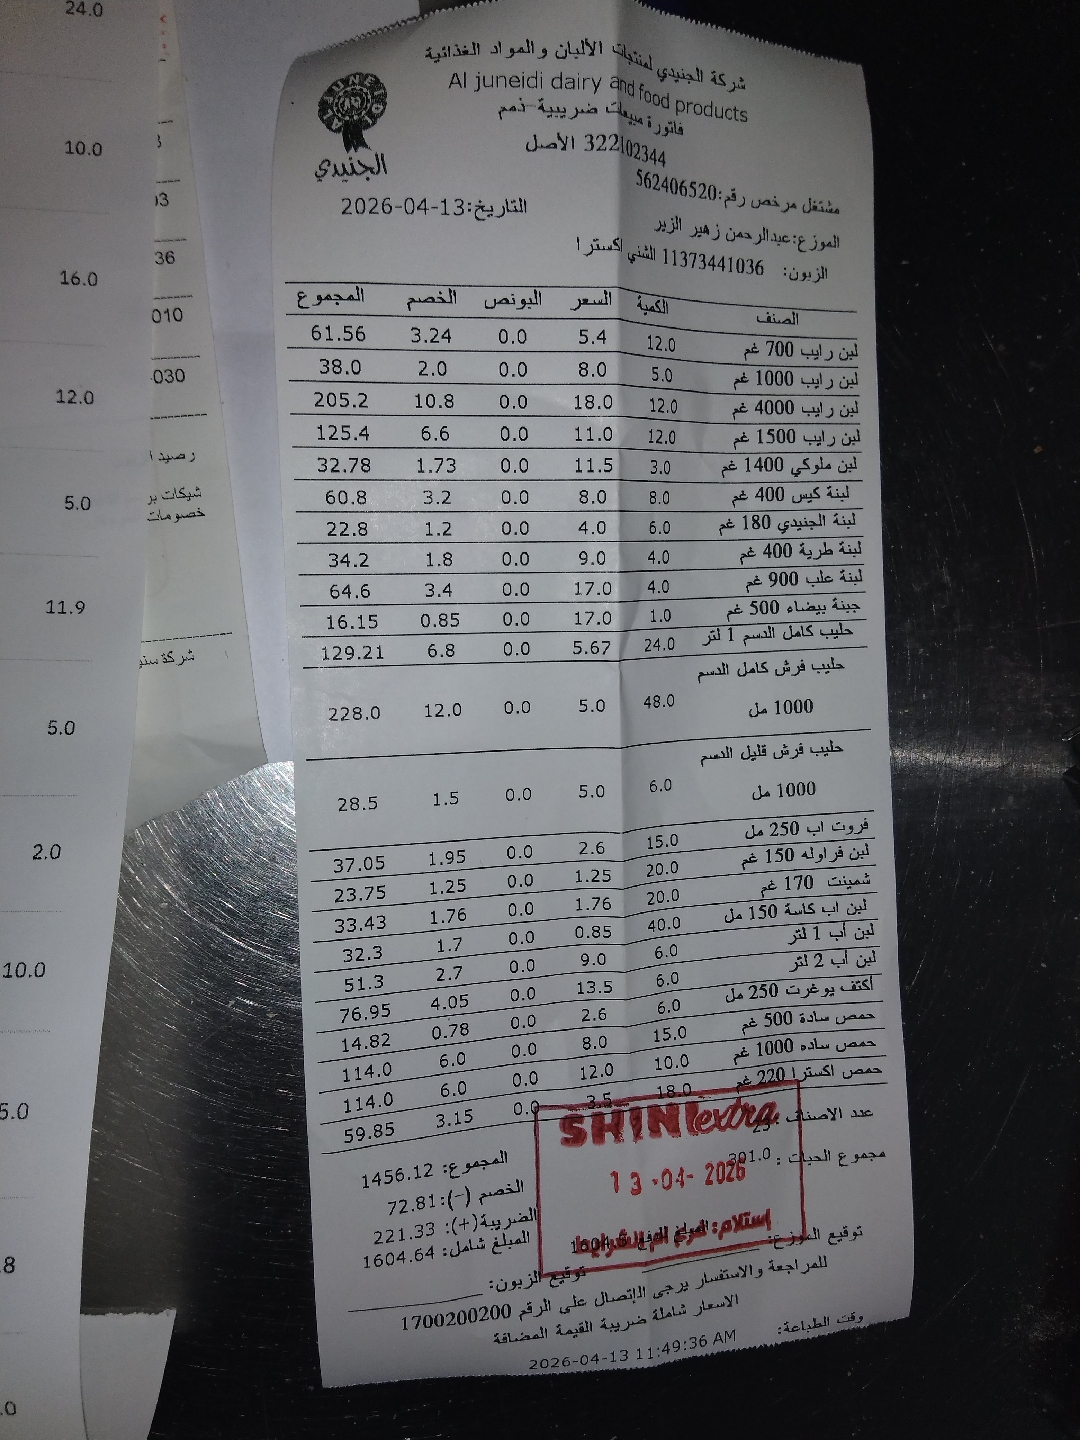 شركة الجنيدي لمنتجات الألبان والمواد الغذائية
Al juneidi dairy and food products
فاتورة مبيعات ضريبية-ذمم
322102344 الأصل
الجنيدي
مشتغل مرخص رقم:562406520
التاريخ:2026-04-13
الموزع:عبدالرحمن زهير الزير
الزبون: 11373441036 الشني اكسترا
الصنف الكمية السعر البونص الخصم المجموع
لبن رايب 700 غم 12.0 5.4 0.0 3.24 61.56
لبن رايب 1000 غم 5.0 8.0 0.0 2.0 38.0
لبن رايب 4000 غم 12.0 18.0 0.0 10.8 205.2
لبن رايب 1500 غم 12.0 11.0 0.0 6.6 125.4
لبن ملوكي 1400 غم 3.0 11.5 0.0 1.73 32.78
لبنة كيس 400 غم 8.0 8.0 0.0 3.2 60.8
لبنة الجنيدي 180 غم 6.0 4.0 0.0 1.2 22.8
لبنة طرية 400 غم 4.0 9.0 0.0 1.8 34.2
لبنة علب 900 غم 4.0 17.0 0.0 3.4 64.6
جبنة بيضاء 500 غم 1.0 17.0 0.0 0.85 16.15
حليب كامل الدسم 1 لتر 24.0 5.67 0.0 6.8 129.21
حليب فرش كامل الدسم
1000 مل 48.0 5.0 0.0 12.0 228.0
حليب فرش قليل الدسم
1000 مل 6.0 5.0 0.0 1.5 28.5
فروت اب 250 مل 15.0 2.6 0.0 1.95 37.05
لبن فراوله 150 غم 20.0 1.25 0.0 1.25 23.75
شمينت 170 غم 20.0 1.76 0.0 1.76 33.43
لبن اب كاسة 150 مل 40.0 0.85 0.0 1.7 32.3
لبن أب 1 لتر 6.0 9.0 0.0 2.7 51.3
لبن أب 2 لتر 6.0 13.5 0.0 4.05 76.95
أكتف يوغرت 250 مل 6.0 2.6 0.0 0.78 14.82
حمص سادة 500 غم 15.0 8.0 0.0 6.0 114.0
حمص ساده 1000 غم 10.0 12.0 0.0 6.0 114.0
حمص اكسترا 220 غم 18.0 3.5 0.0 3.15 59.85
عدد الاصناف : 23
مجموع الحبات : 301.0
المجموع: 1456.12
الخصم (-): 72.81
الضريبة(+): 221.33
المبلغ شامل: 1604.64
SHINI extra
13-04-2026
إستلام:
توقيع الموزع:
توقيع الزبون:
للمراجعة والاستفسار يرجى الإتصال على الرقم 1700200200
الاسعار شاملة ضريبة القيمة المضافة
وقت الطباعة: 2026-04-13 11:49:36 AM
24.0
10.0
16.0
12.0
5.0
11.9
5.0
2.0
10.0
36
010
030
رصيد
شيكات بر
خصومات
شركة سنو